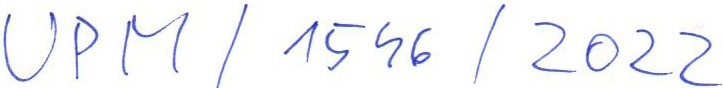 UPM / 1546 / 2022